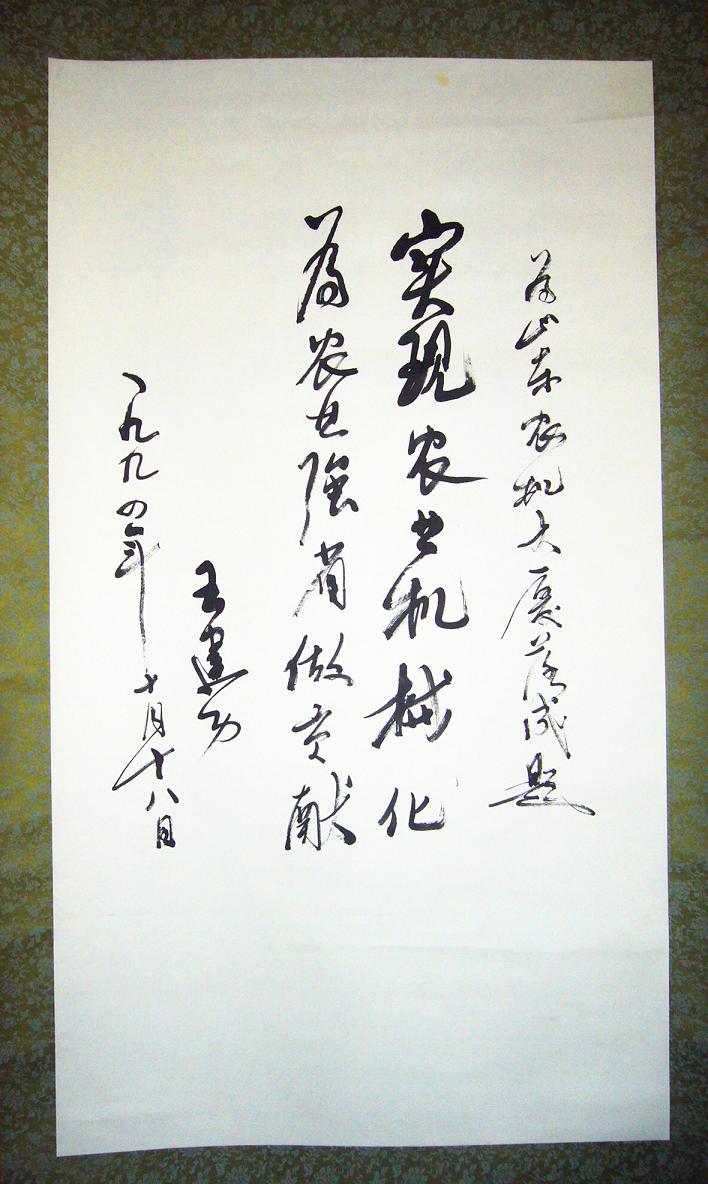 为山东农机大厦落成题
实现农业机械化
為农业强省做贡献
王建功
一九九四年十月十八日